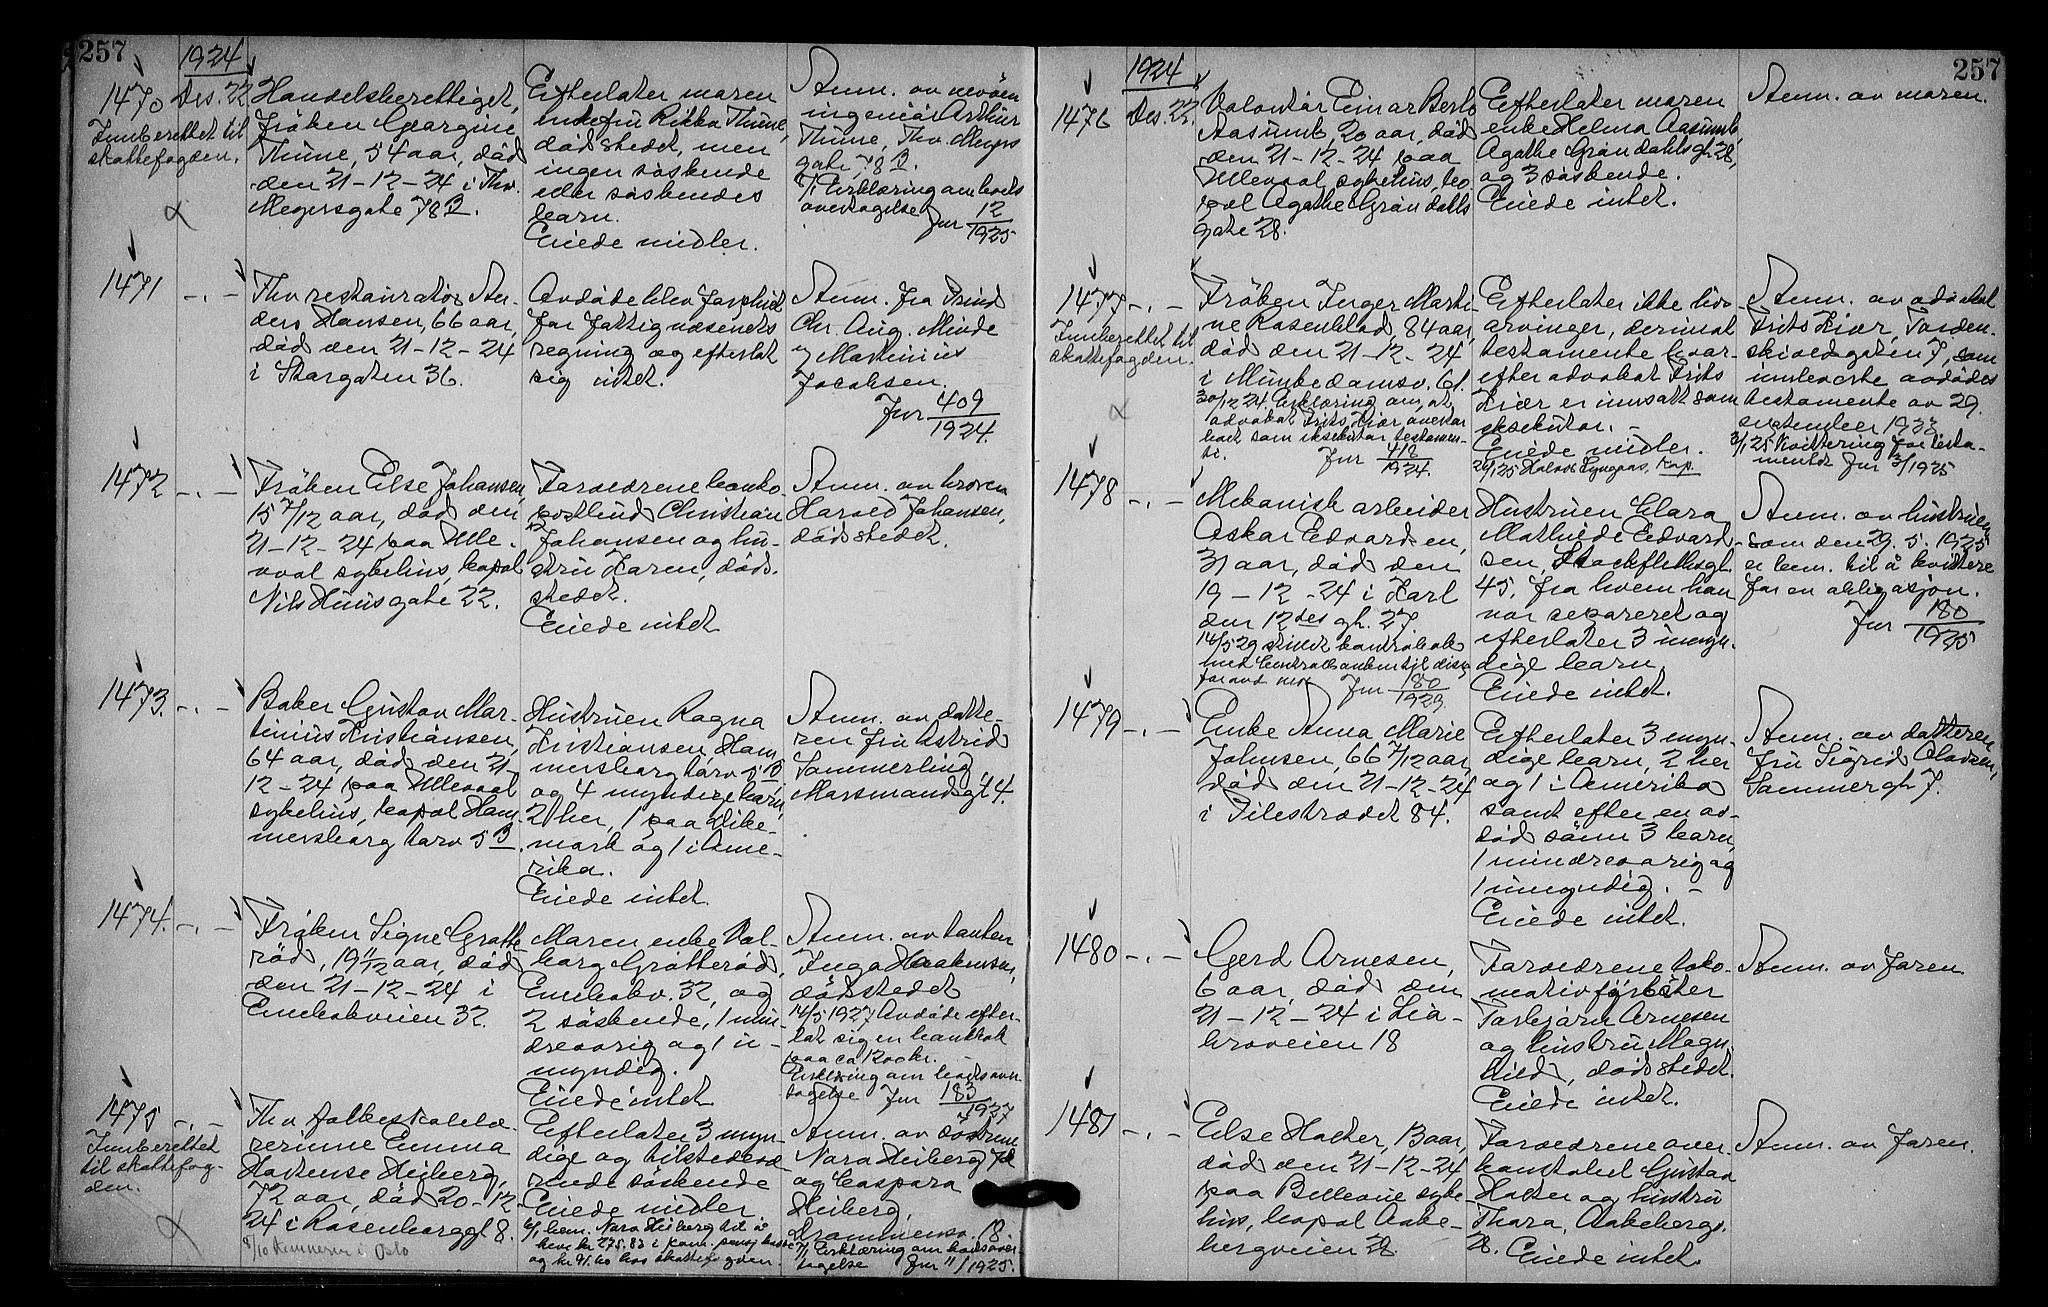 257
1924
1470
Des. 22
Innberettet til
skattefogden.
Handelsberettiget,
frøken Georgine
Thune, 54 aar, død
den 21-12-24 i Thv.
Meyersgate 78 B.
Efterlater moren
enkefru Rikka Thune,
dødstedet, men
ingen søskende
eller søskendes
barn.
Eiede midler.
Anm. av nevøen
ingeniør Arthur
Thune, Thv. Meyers
gate 78 B.
8/1 Erklæring om boets
overtagelse
Jur 12/1925
1471 -.-
Fhv restauratør An-
ders Hansen, 66 aar,
død den 21-12-24
i Storgaten 36.
Avdøde blev forpleiet
for fattigvæsenets
regning og efterlot
sig intet.
Anm. fra
Chr. Aug. Minde
og Martinius
Jacobsen.
Jur 409/1924
1472 -.-
Frøken Else Johansen
15 7/12 aar, død den
21-12-24 paa Ulle-
vaal sykehus, bopæl
Nils Huusgate 22.
Forældrene konto-
Christian
Johansen og hu-
stru Karen, døds-
stedet.
Eiede intet
Anm. av broren
Harald Johansen,
dødstedet.
1473. -.-
Baker Gustav Mar-
tinius Kristiansen,
64 aar, død den 21-
12-24 paa Ullevaal
sykehus, bopæl Ham-
mersborg torv 5 B.
Hustruen Ragna
Kristiansen Ham-
mersborg torv 5 B
og 4 myndige barn,
2 her, 1 paa Dike-
mark og 1 i Ame-
rika.
Eiede intet.
Anm. av datte-
ren fru Astrid
Sommerling,
Marsmandsgt 4.
1474. -.-
Frøken Signe Gratte-
rød, 19 1/12 aar, død
den 21-12-24 i
Enebakveien 32.
Moren enke Val-
borg Gratterød,
Enebakv. 32, og
2 søskende, 1 min-
dreaarig og 1 u-
myndig.
Eiede intet
Anm. av tanten
Inga Haakensen,
dødstedet
14/5 1927 Avdøde efter-
lot sig en bankbok
paa ca 1200 kr.
Erklæring om boets over-
tagelse Jur 183/1927
1475 -.-
Innberettet
til skattefog-
den.
Fhv folkeskolelæ-
rerinne Emma
Hortense Heiberg,
72 aar, død 20-12-
24 i Rosenborggt 8.
8/10 Kemneren i Oslo
Efterlater 3 myn-
dige og tilstedevæ-
rende søskende
Eiede midler
bem. Nora Heiberg til å
heve kr 275.83 i kom. pensj. kasse
og kr 91.60 hos skattefogden.
Anm. av søstrene
Nora Heiberg
og Caspara
Heiberg,
Drammensv. 18.
7/1 Erklæring om boets over-
tagelse Jur 11/1925.
257
1924
1476
Des. 22.
Volontør Einar Berto
Aasumb, 20 aar, død
den 21-12-24 paa
Ullevaal sykehus, bo-
pæl Agathe Grøndahls
gate 28.
Efterlater moren
enke Helma Aasumb,
Agathe Grøndahls gt 28,
og 3 søskende.
Eiede intet.
Anm. av moren.
1477 -.-
Innberettet til
skattefogden.
Frøken Inger Marti-
ne Rosenblad, 84 aar,
død den 21-12-24
i Munkedamsv. 61.
30/12 24 Erklæring om, at
advokat Frits Kiær overtar
boet som eksekutor testamen-
ti.
Jur 418/1924
Efterlater ikke livs-
arvinger, derimot
testamente hvor-
efter advokat Frits
Kiær er innsatt som
eksekutor.
Eiede midler.
Halvor Lyngaas, Kap.
Anm. av advokat
Frits Kiær, Torden-
skioldsgaten 7, som
innleverte avdødes
testamente av 29.
september 1923
3/1 25 Kvittering for testa-
mentet Jur 3/1925
1478 -.-
Mekanisk arbeider
Oskar Edvardsen,
31 aar, død den
19-12-24 i Karl
den 12tes gt. 27
14/5 29 skiftet
med Centralbanken til
Jur 180/1929
Hustruen Clara
Mathilde Edvard-
sen, Stockflethsgt.
45, fra hvem han
var separeret og
efterlater 3 umyn-
dige barn.
Eiede intet.
Anm. av hustruen
som den 29.5.1925
er bem. til å kvittere
for en obligasjon.
Jur 180/1925
1479 -.-
Enke Anna Marie
Johnsen, 66 7/12 aar,
død den 21-12-24
i Pilestrædet 84.
Efterlater 3 myn-
dige barn, 2 her
og 1 i Amerika
samt efter en av-
død sønn 3 barn,
1 mindreaarig og
1 umyndig.
Eiede intet.
Anm. av datteren
fru Sigrid Olavsen,
Sommergt 7.
1480 -.-
Gerd Arnesen,
6 aar, død den
21-12-24 i Lia-
broveien 18
Forældrene loko-
motivfyrbøter
Torbjørn Arnesen
og hustru Magn-
hild, dødstedet.
Eiede intet.
Anm. av faren
1481 -.-
Else Holter, 13 aar,
død den 21-12-24
paa Bellevue syke-
hus, bopæl Aake-
bergveien 28.
Forældrene over-
konstabel Gustav
Holter og hustru
Thora, Aakebergv.
28. Eiede intet.
Anm. av faren.